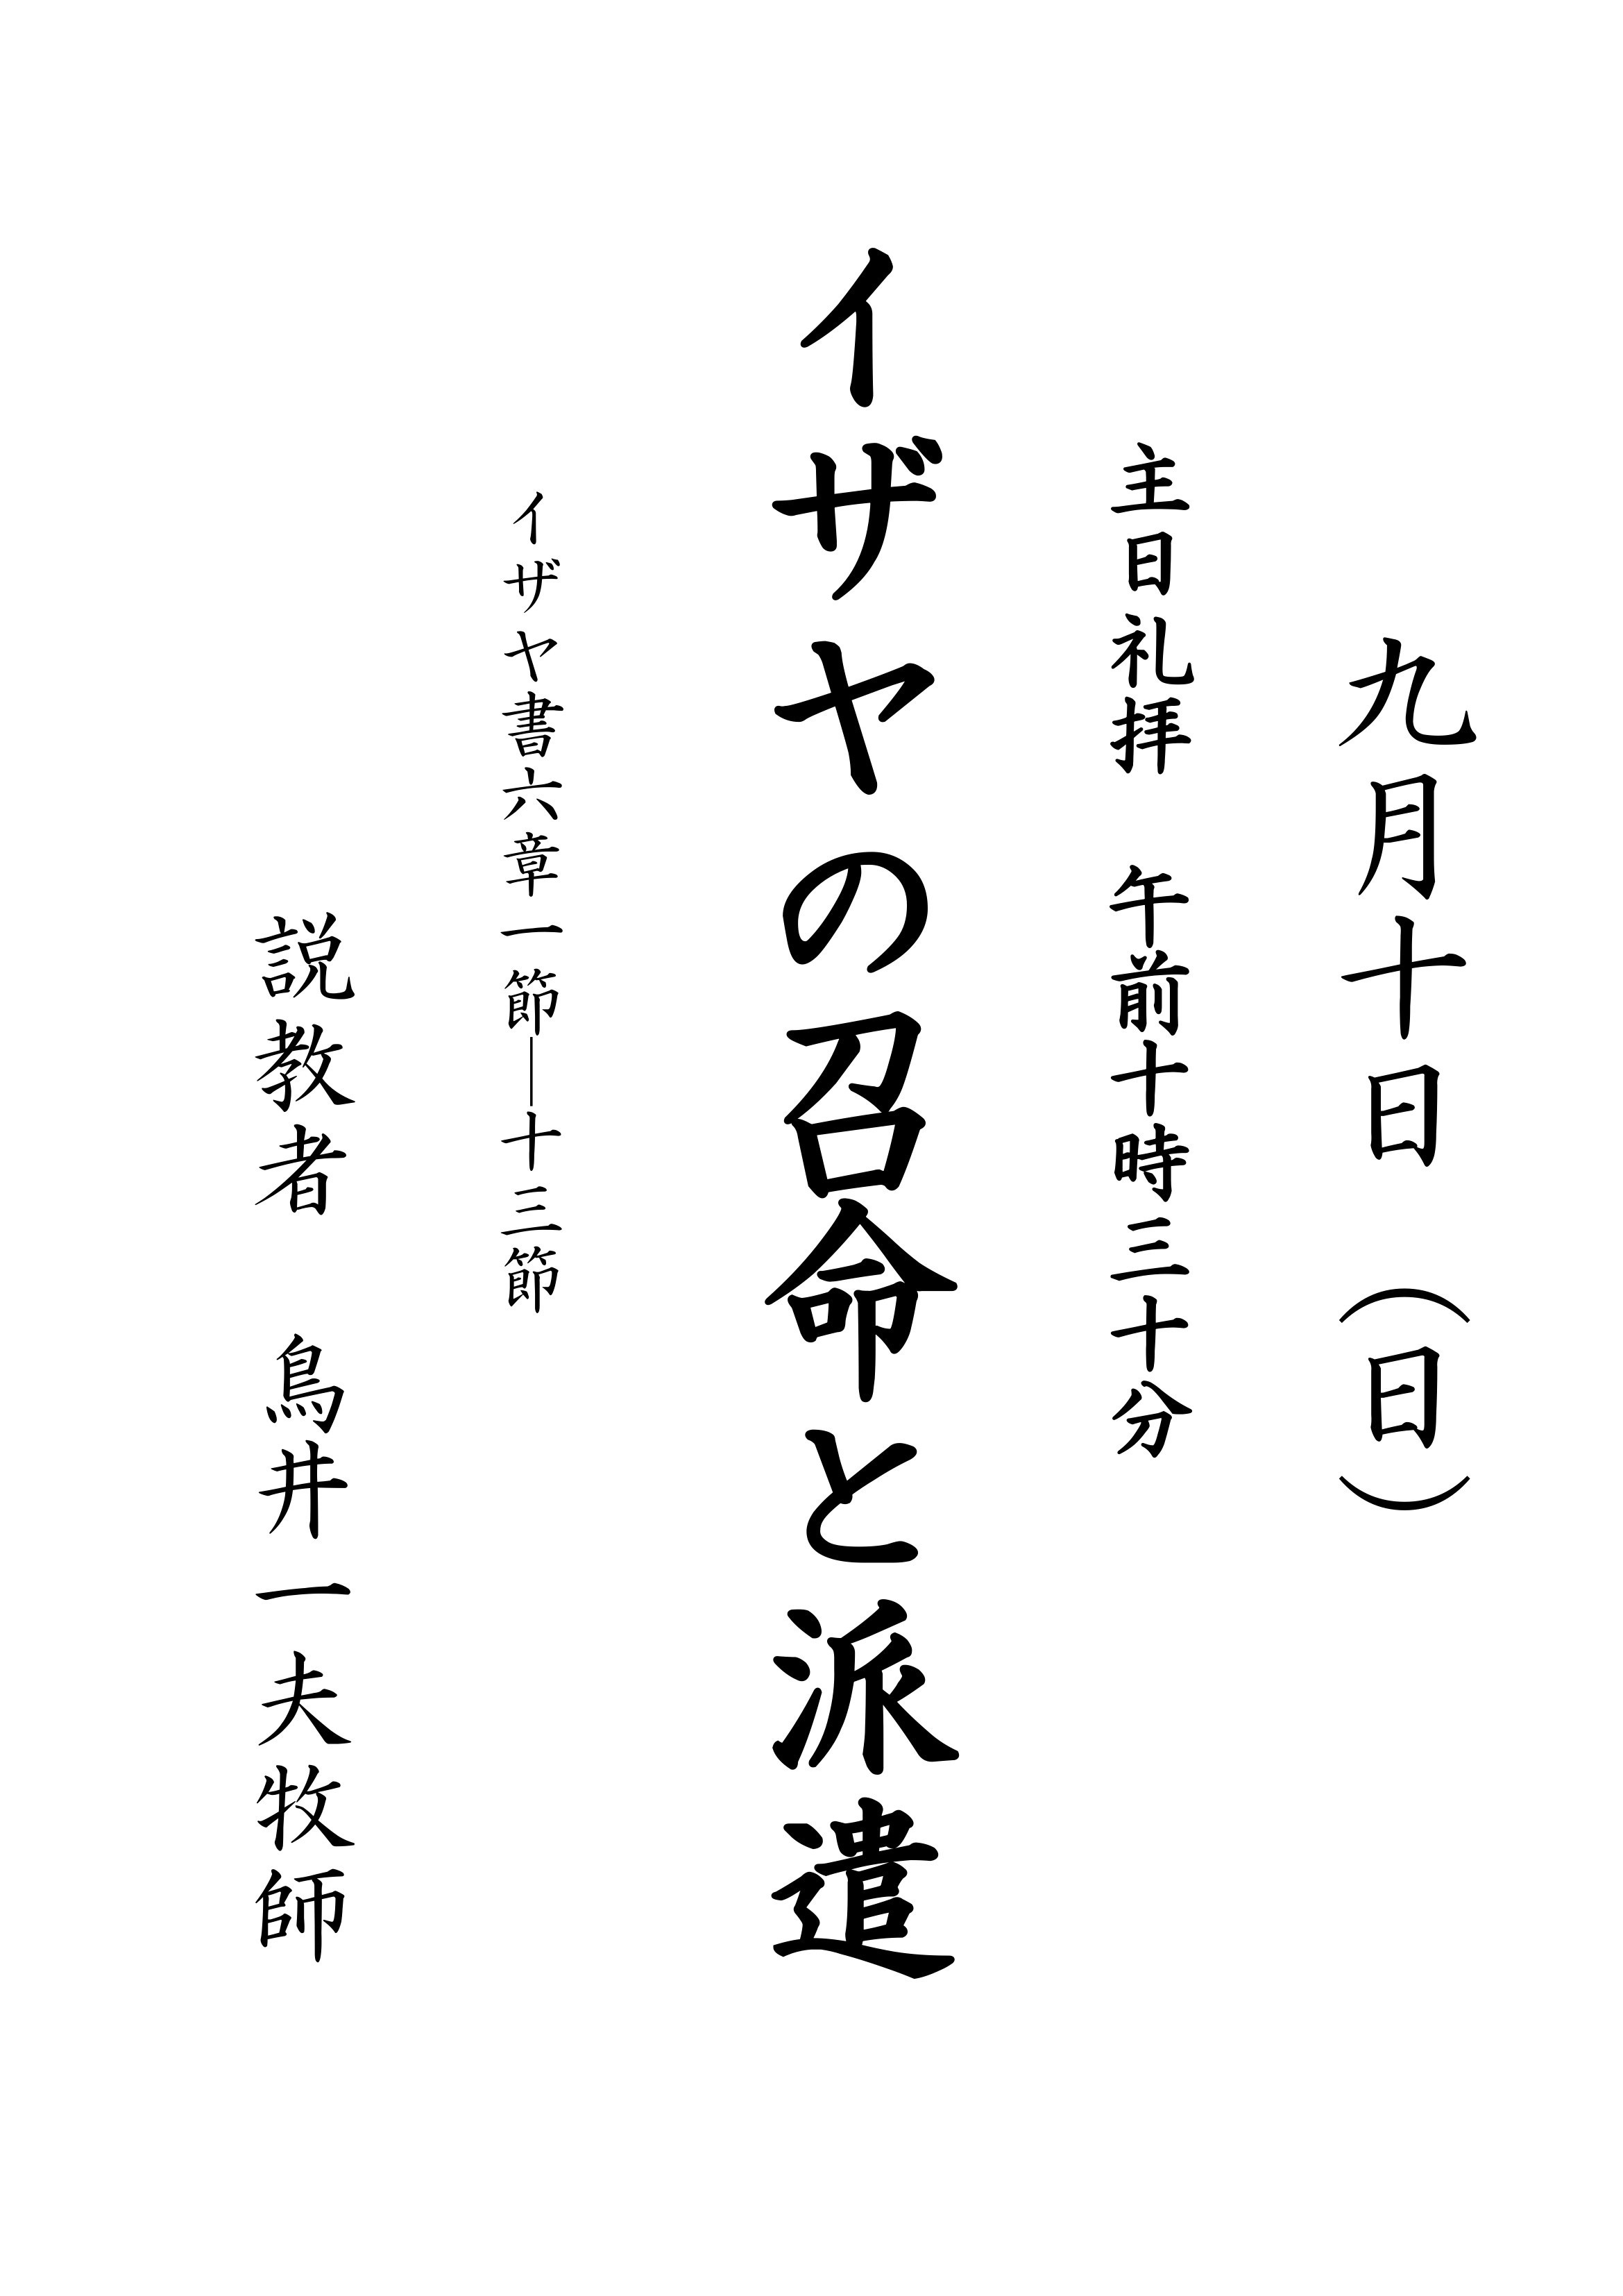 九月十日（日）
主日礼拝　午前十時三十分
イザヤの召命と派遣
イザヤ書六章一節―十三節
説教者　鳥井一夫牧師